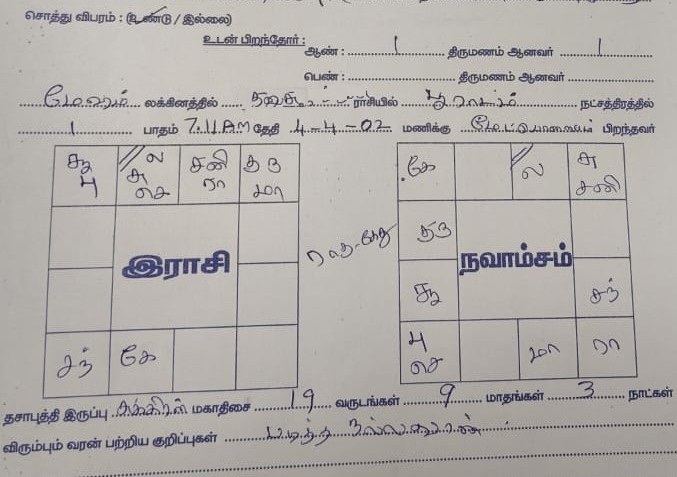 சொத்து விபரம் : (உண்டு / இல்லை)
உடன் பிறந்தோர் :
ஆண் : 1 திருமணம் ஆனவர் 1
பெண் : திருமணம் ஆனவர்
மேஷம் லக்கினத்தில் தனுசு ராசியில் பூராடம் நட்சத்திரத்தில்
1 பாதம் 7.11AM தேதி 4-4-02 மணிக்கு பிறந்தவர்
சூ பு ல அ செ சனி ரா குரு மா
இராசி
சந் கே
ராகு-கேது
கே ல அ சனி
குரு
நவாம்சம்
சூ சந்
பு செ மா ரா
தசாபுத்தி இருப்பு சுக்கிரன் மகாதிசை 19 வருடங்கள் 9 மாதங்கள் 3 நாட்கள்
விரும்பும் வரன் பற்றிய குறிப்புகள் படித்த நல்ல